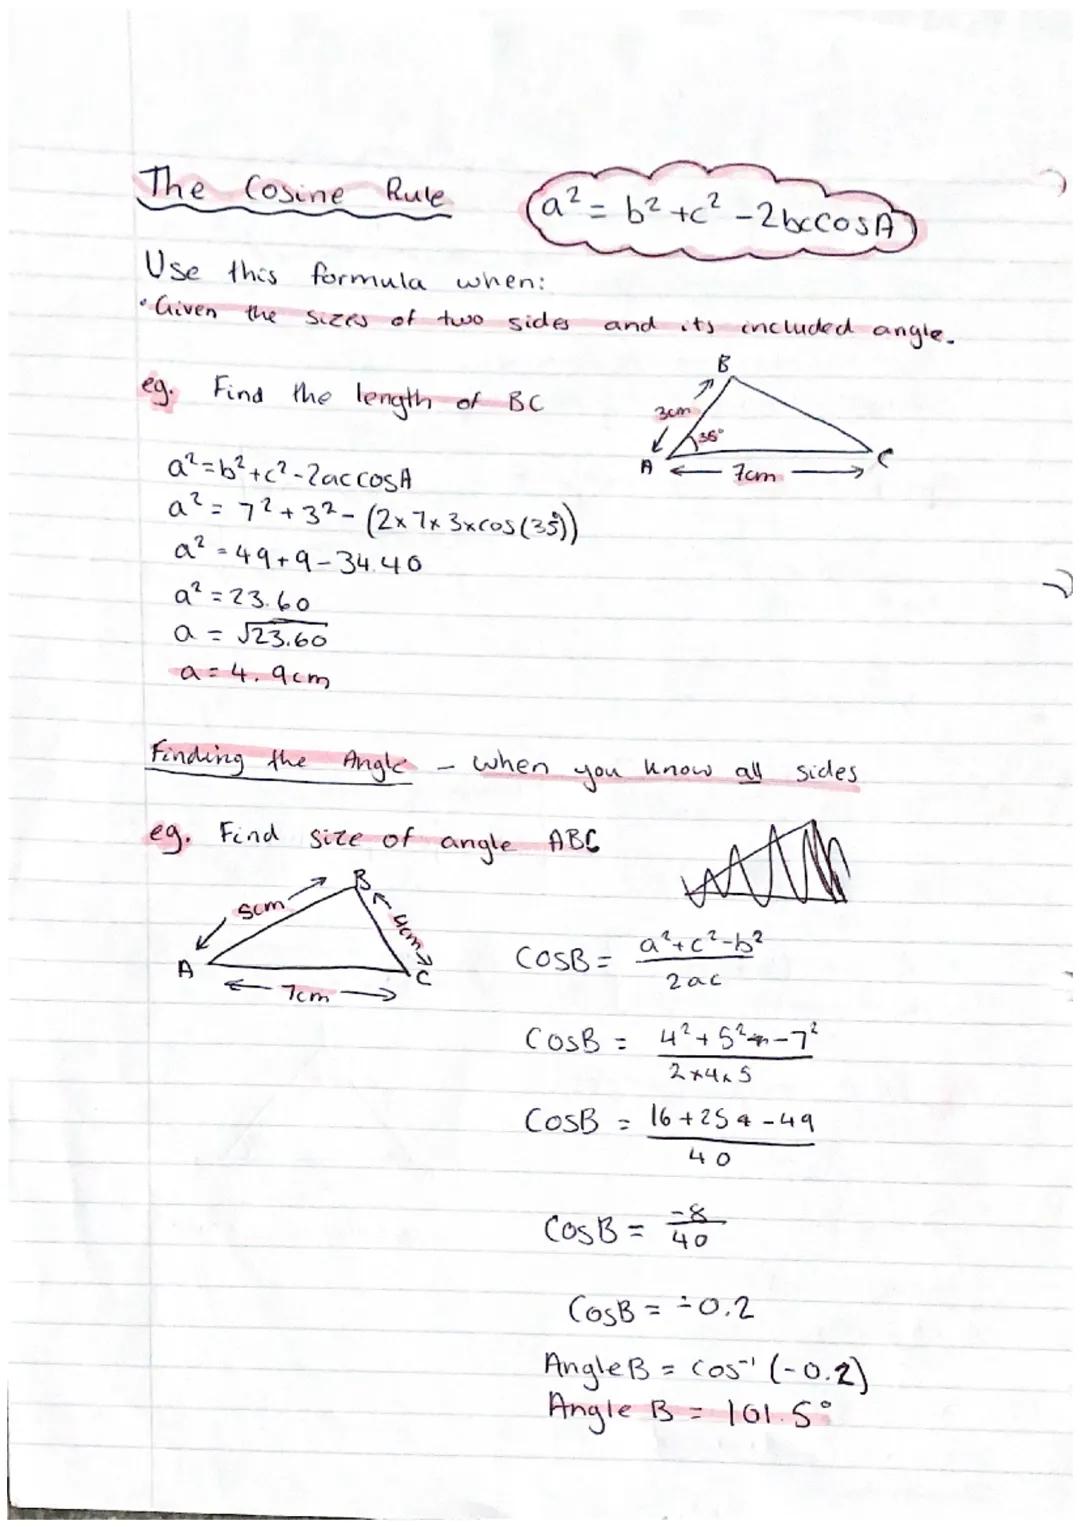 The Cosine Rule
a² = b² + c² - 2bccosA
Use this formula when:
• Given the sizes of two sides and its included angle.
eg. Find the length of BC
B
3cm
35°
A
7cm
C
a² = b² + c² - 2accosA
a² = 7² + 3² - (2×7×3×cos(35°))
a² = 49 + 9 - 34.40
a² = 23.60
a = √23.60
a = 4.9cm
Finding the Angle - when you know all sides
eg. Find size of angle ABC
B
5cm
4cm
A
7cm
C
CosB = a² + c² - b² / 2ac
CosB = 4² + 5² - 7² / 2×4×5
CosB = 16 + 25 - 49 / 40
CosB = -8 / 40
CosB = -0.2
Angle B = cos⁻¹ (-0.2)
Angle B = 101.5°